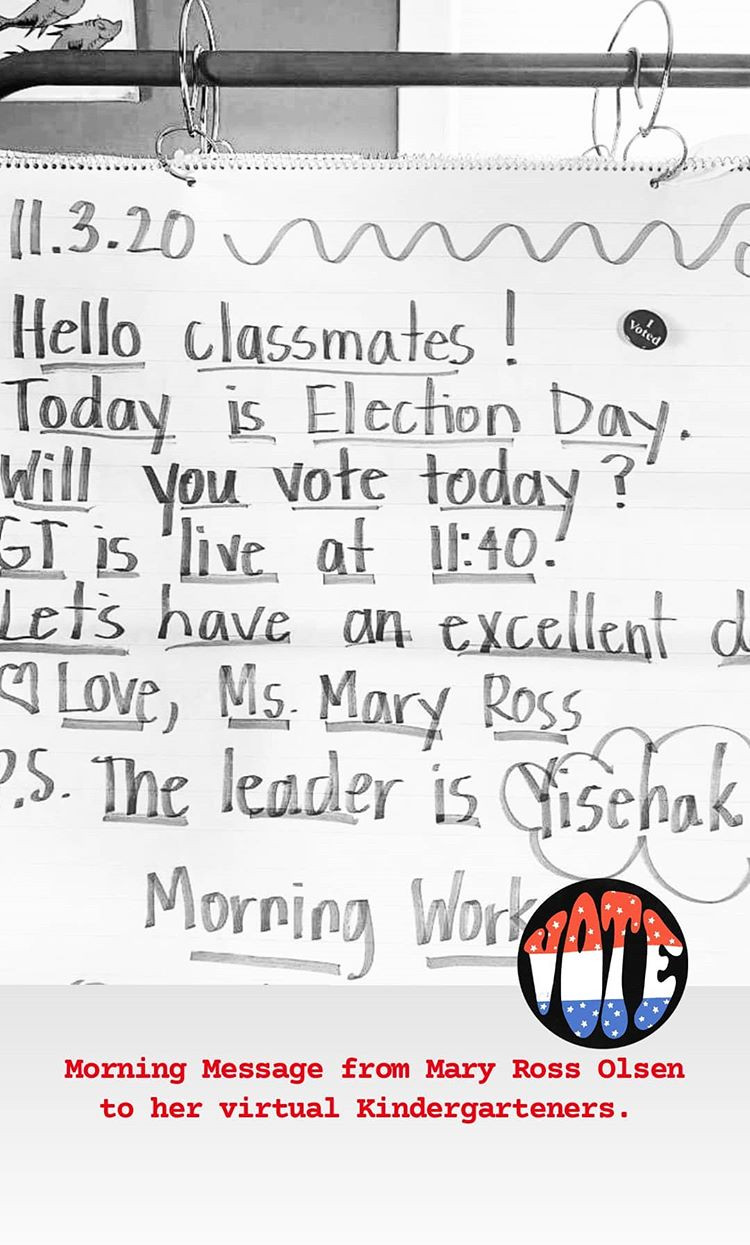 11.3.20
Hello classmates!
I
Voted
Today is Election Day.
Will you vote today?
GT is live at 11:40.
Let's have an excellent d
Love, Ms. Mary Ross
P.S. The leader is Yisehak
Morning Work
VOTE
Morning Message from Mary Ross Olsen
to her virtual Kindergarteners.